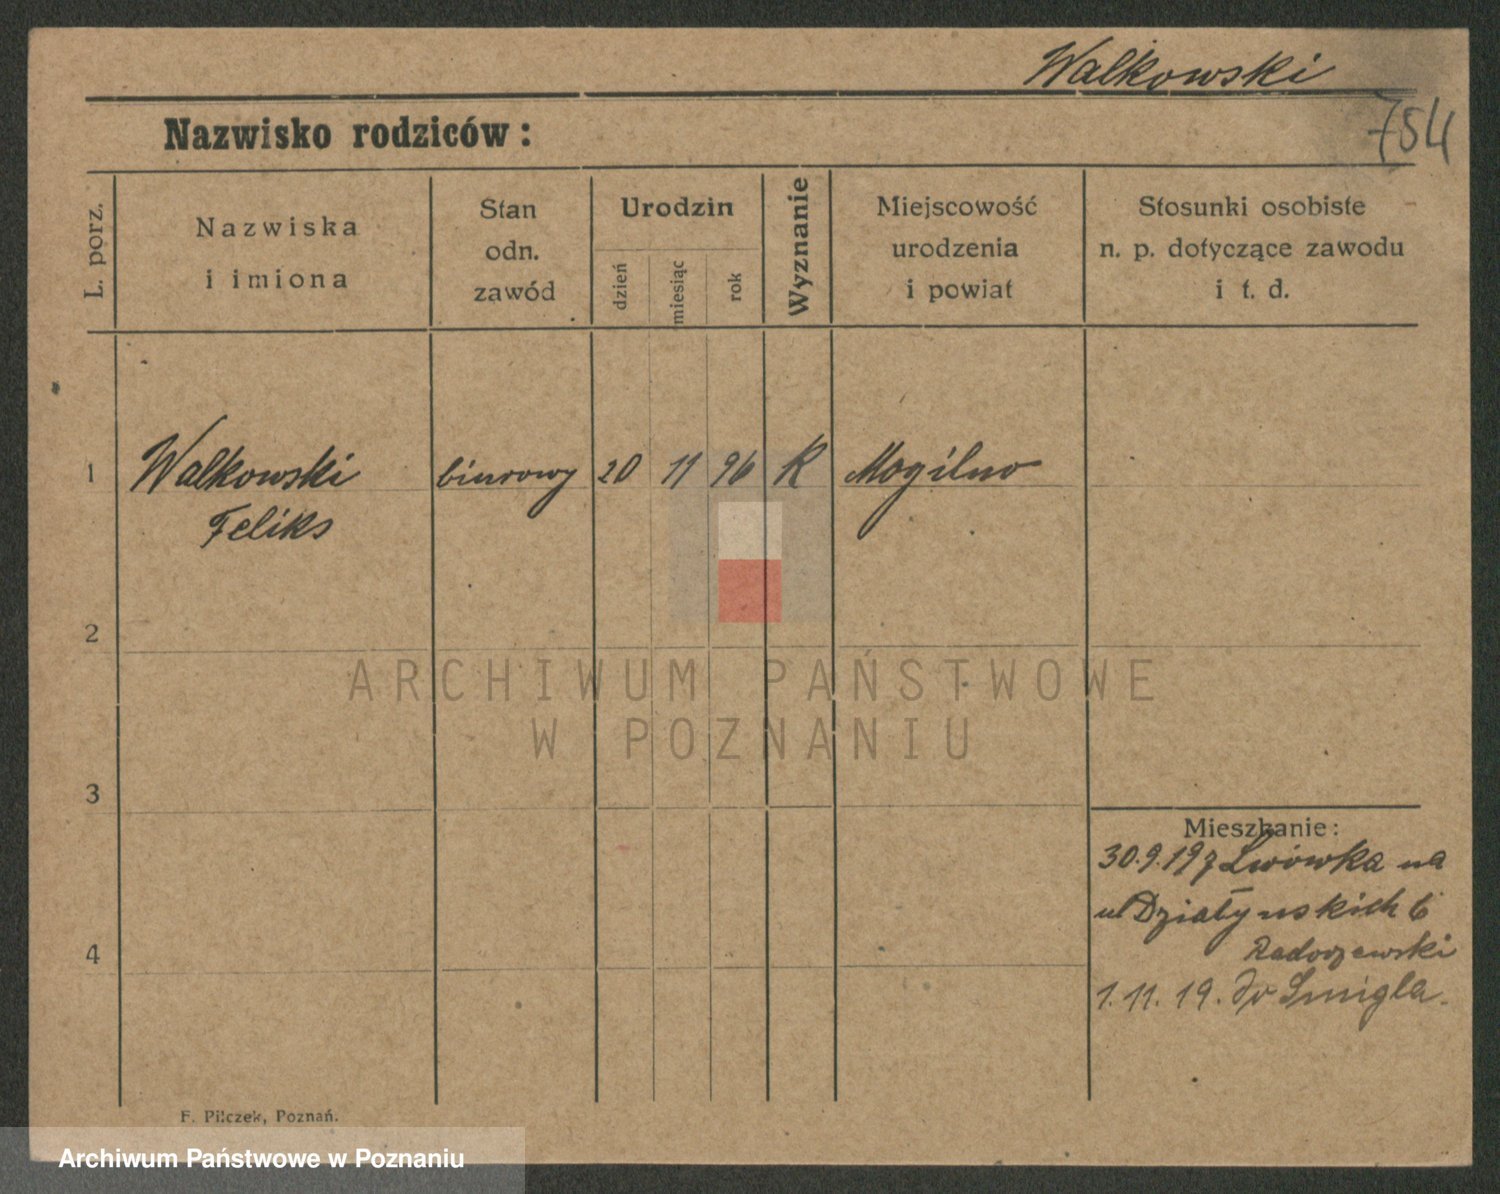 Walkowski
754
Nazwisko rodziców:
L. porz.
Nazwiska
i imiona
Stan
odn.
zawód
Urodzin
dzień
miesiąc
rok
Wyznanie
Miejscowość
urodzenia
i powiat
Stosunki osobiste
n. p. dotyczące zawodu
i t. d.
1
Walkowski
Feliks
biurowy
20
11
96
K
Mogilno
2
3
4
ARCHIWUM PAŃSTWOWE
W POZNANIU
Mieszkanie:
30.9.19 z Lwówka na
ul Działyńskich 6
Radojewski
1.11.19. do Smigla.
F. Pilczek, Poznań.
Archiwum Państwowe w Poznaniu